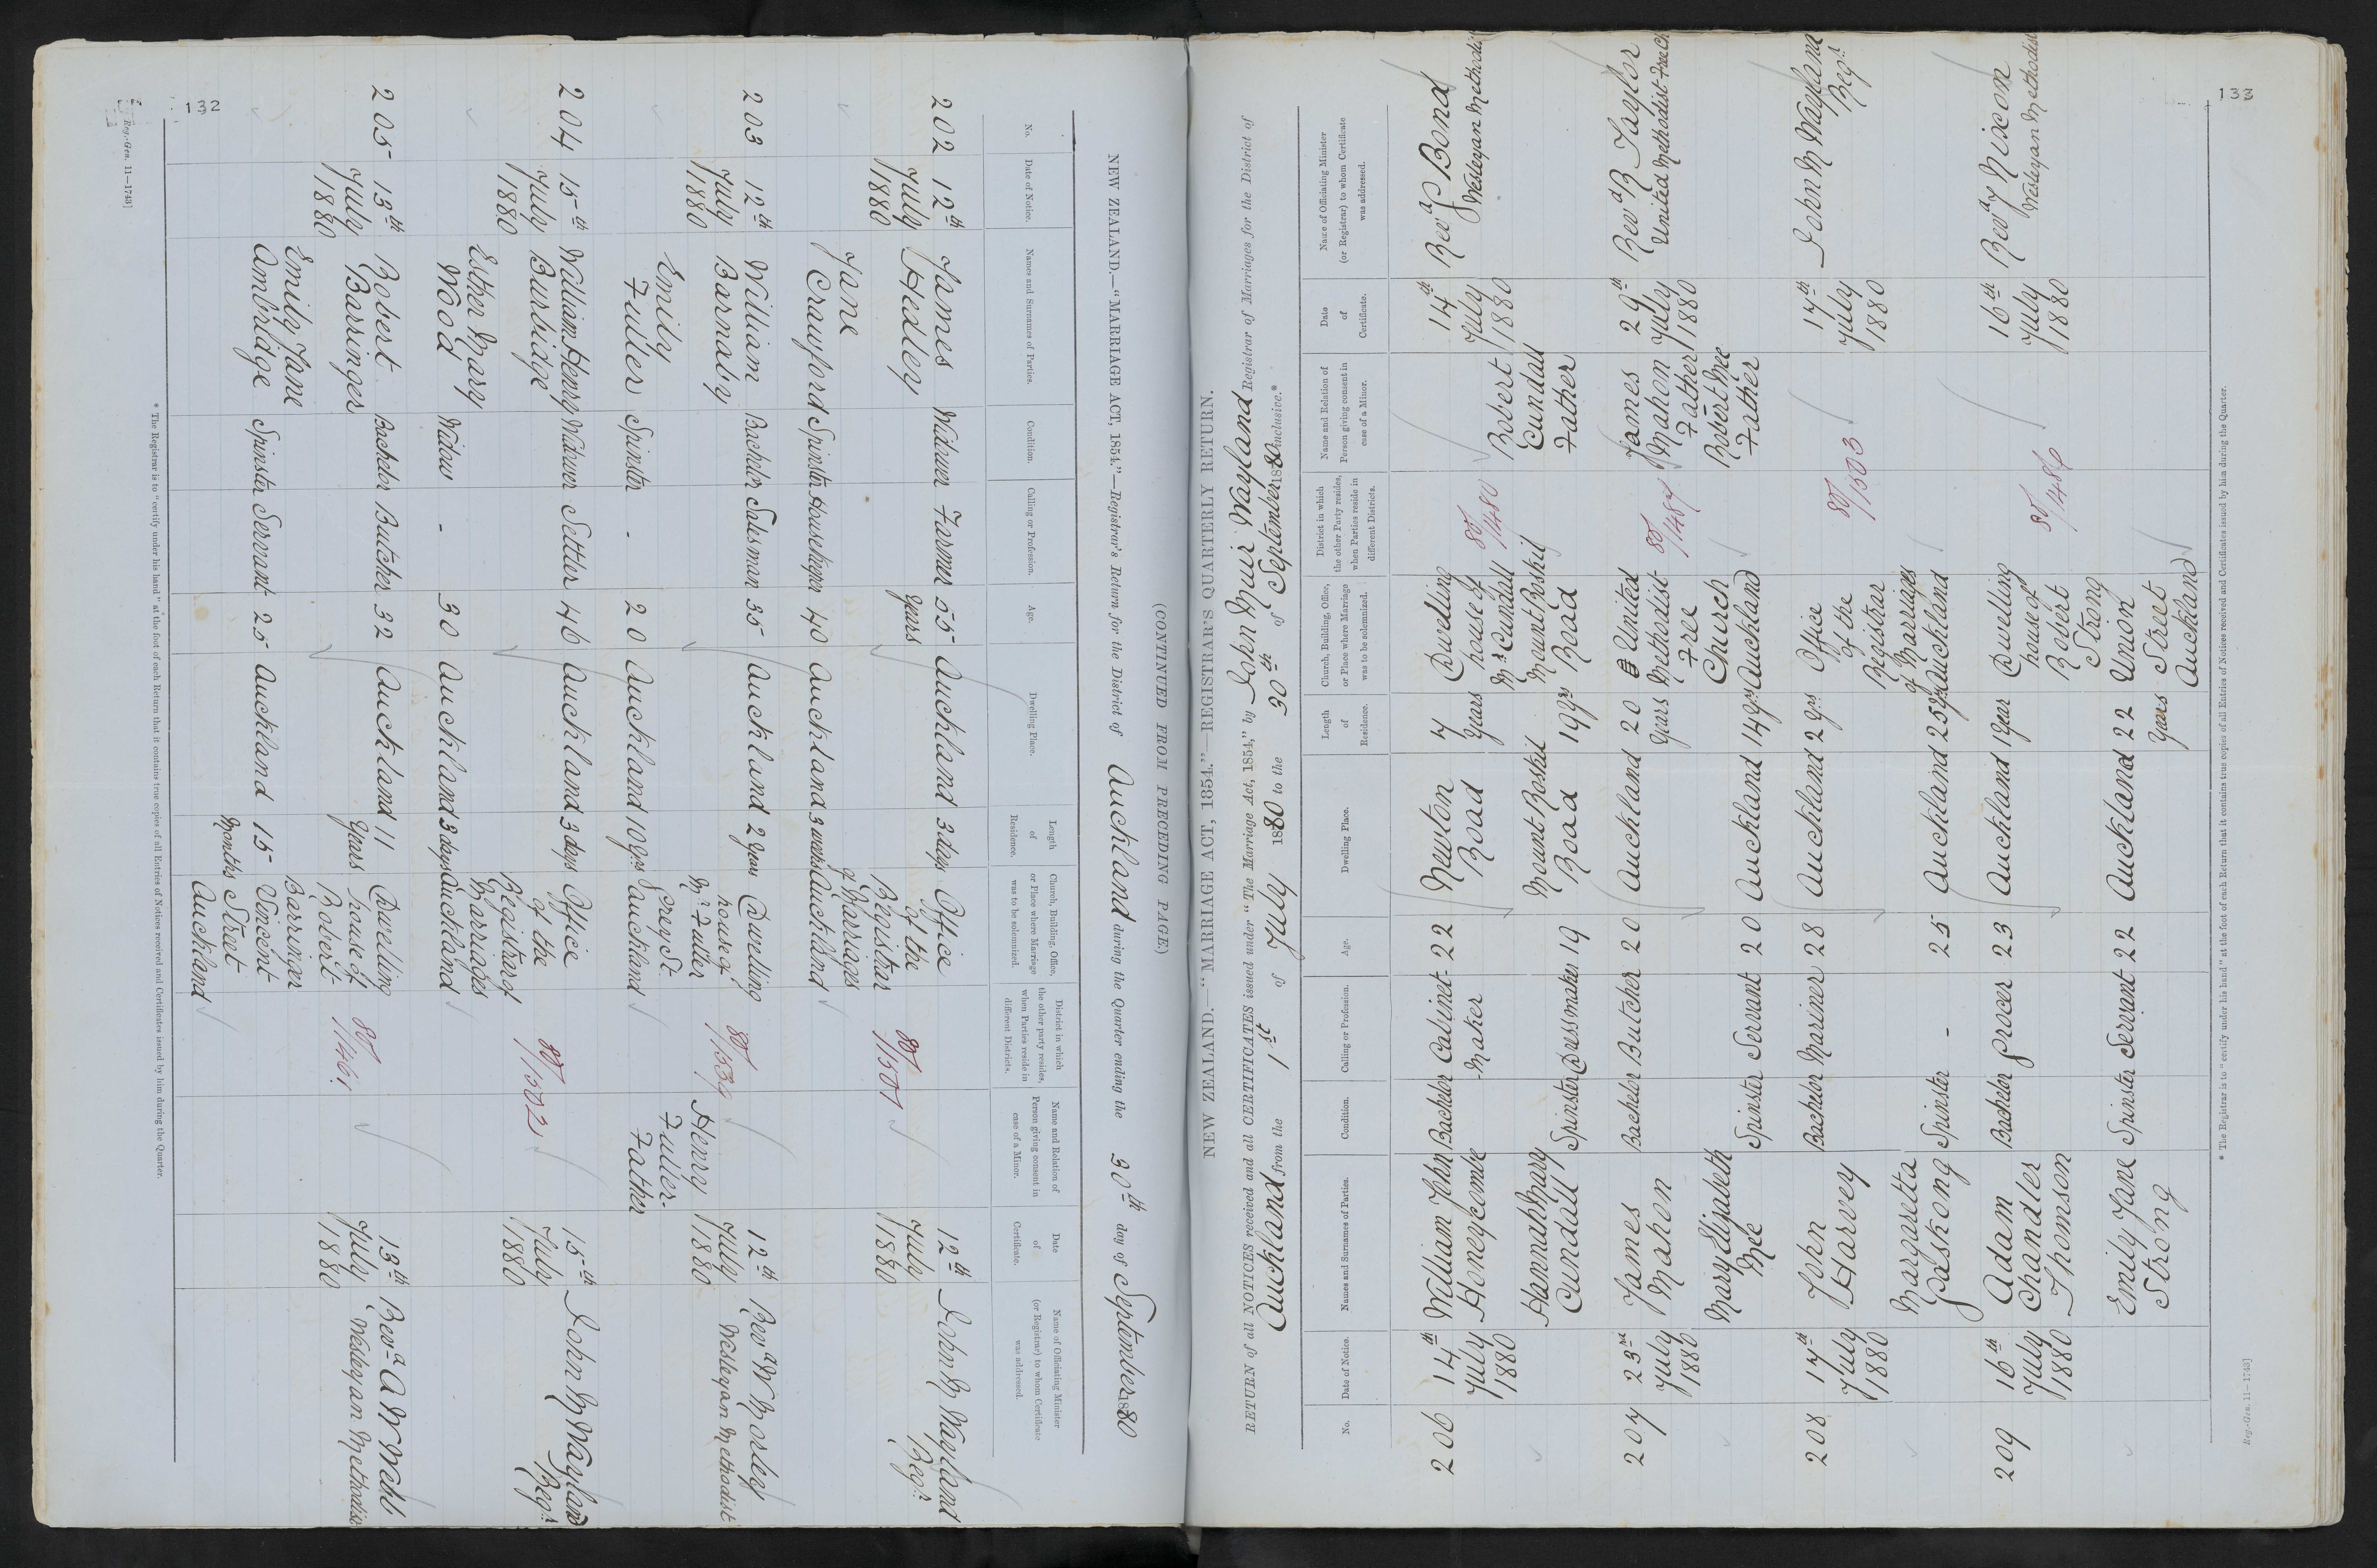 132
NEW ZEALAND.—"MARRIAGE ACT, 1854."—Registrar's Return for the District of Auckland during the Quarter ending the 30th day of September 1880
(CONTINUED FROM PRECEDING PAGE)
No. Date of Notice. Names and Surnames of Parties. Condition. Calling or Profession. Age. Dwelling Place. Length of Residence. Church, Building, Office, or Place where Marriage was to be solemnized. District in which the other party resides, when Parties reside in different Districts. Name and Relation of Person giving consent in case of a Minor. Date of Certificate. Name of Officiating Minister (or Registrar) to whom Certificate was addressed.
202 12th July 1880 James Hedley Widower Farmer 55 years Auckland 3 days Office of the Registrar of Marriages Auckland 80/1501 12th July 1880 John M Wayland Regr
Jane Crawford Spinster Housekeeper 40 Auckland 3 weeks
203 12th July 1880 William Barnaby Bachelor Salesman 35 Auckland 2 years Dwelling house of Mr Fuller Grey St Auckland 12th July 1880 Revd W Morley Wesleyan Methodist
Emily Fuller Spinster - 20 Auckland 10 yrs Henry Fuller - Father
204 15th July 1880 William Henry Burbidge Widower Settler 46 Auckland 3 days Office of the Registrar of Marriages Auckland 80/1502 15th July 1880 John M Wayland Regr
Esther Mary Wood Widow - 30 Auckland 3 days
205 13th July 1880 Robert Barringer Bachelor Butcher 32 Auckland 11 years Dwelling house of Robert Barringer Vincent Street Auckland 80/1461 13th July 1880 Revd A W Wehl Wesleyan Methodist
Emily Jane Ambridge Spinster Servant 25 Auckland 15 months
* The Registrar is to "certify under his hand" at the foot of each Return that it contains true copies of all Entries of Notices received and Certificates issued by him during the Quarter.
Reg.-Gen. 11—1743]
133
NEW ZEALAND.—"MARRIAGE ACT, 1854."—REGISTRAR'S QUARTERLY RETURN.
RETURN of all NOTICES received and all CERTIFICATES issued under "The Marriage Act, 1854," by John Muir Wayland Registrar of Marriages for the District of
Auckland from the 1st of July 1880 to the 30th of September 1880 inclusive.*
No. Date of Notice. Names and Surnames of Parties. Condition. Calling or Profession. Age. Dwelling Place. Length of Residence. Church, Building, Office, or Place where Marriage was to be solemnized. District in which the other Party resides, when Parties reside in different Districts. Name and Relation of Person giving consent in case of a Minor. Date of Certificate. Name of Officiating Minister (or Registrar) to whom Certificate was addressed.
206 14th July 1880 William John Honeycombe Bachelor Cabinet-Maker 22 Newton Road 7 years Dwelling house of Mr Cundall Mount Roskil Road 80/1480 14th July 1880 Revd J Bond Wesleyan Methodist
Hannah Mary Cundall Spinster Dressmaker 19 Mount Roskil Road 19 yrs Robert Cundall Father
207 23rd July 1880 James Mahon Bachelor Butcher 20 Auckland 20 years United Methodist Free Church Auckland James Mahon Father 29th July 1880 Revd R Taylor United Methodist Free Ch
Mary Elizabeth Mee Spinster Servant 20 Auckland 14 yrs Robert Mee Father
208 17th July 1880 John Harvey Bachelor Mariner 28 Auckland 2 yrs Office of the Registrar of Marriages Auckland 80/1503 17th July 1880 John M Wayland Regr
Margretta Gaskong Spinster - 25 Auckland 25 yrs
209 16th July 1880 Adam Chandler Thomson Bachelor Grocer 23 Auckland 1 year Dwelling house of Robert Strong Union Street Auckland 80/1486 16th July 1880 Revd J Nixon Wesleyan Methodist
Emily Jane Strong Spinster Servant 22 Auckland 22 years
* The Registrar is to "certify under his hand" at the foot of each Return that it contains true copies of all Entries of Notices received and Certificates issued by him during the Quarter.
Reg.-Gen. 11—1743]